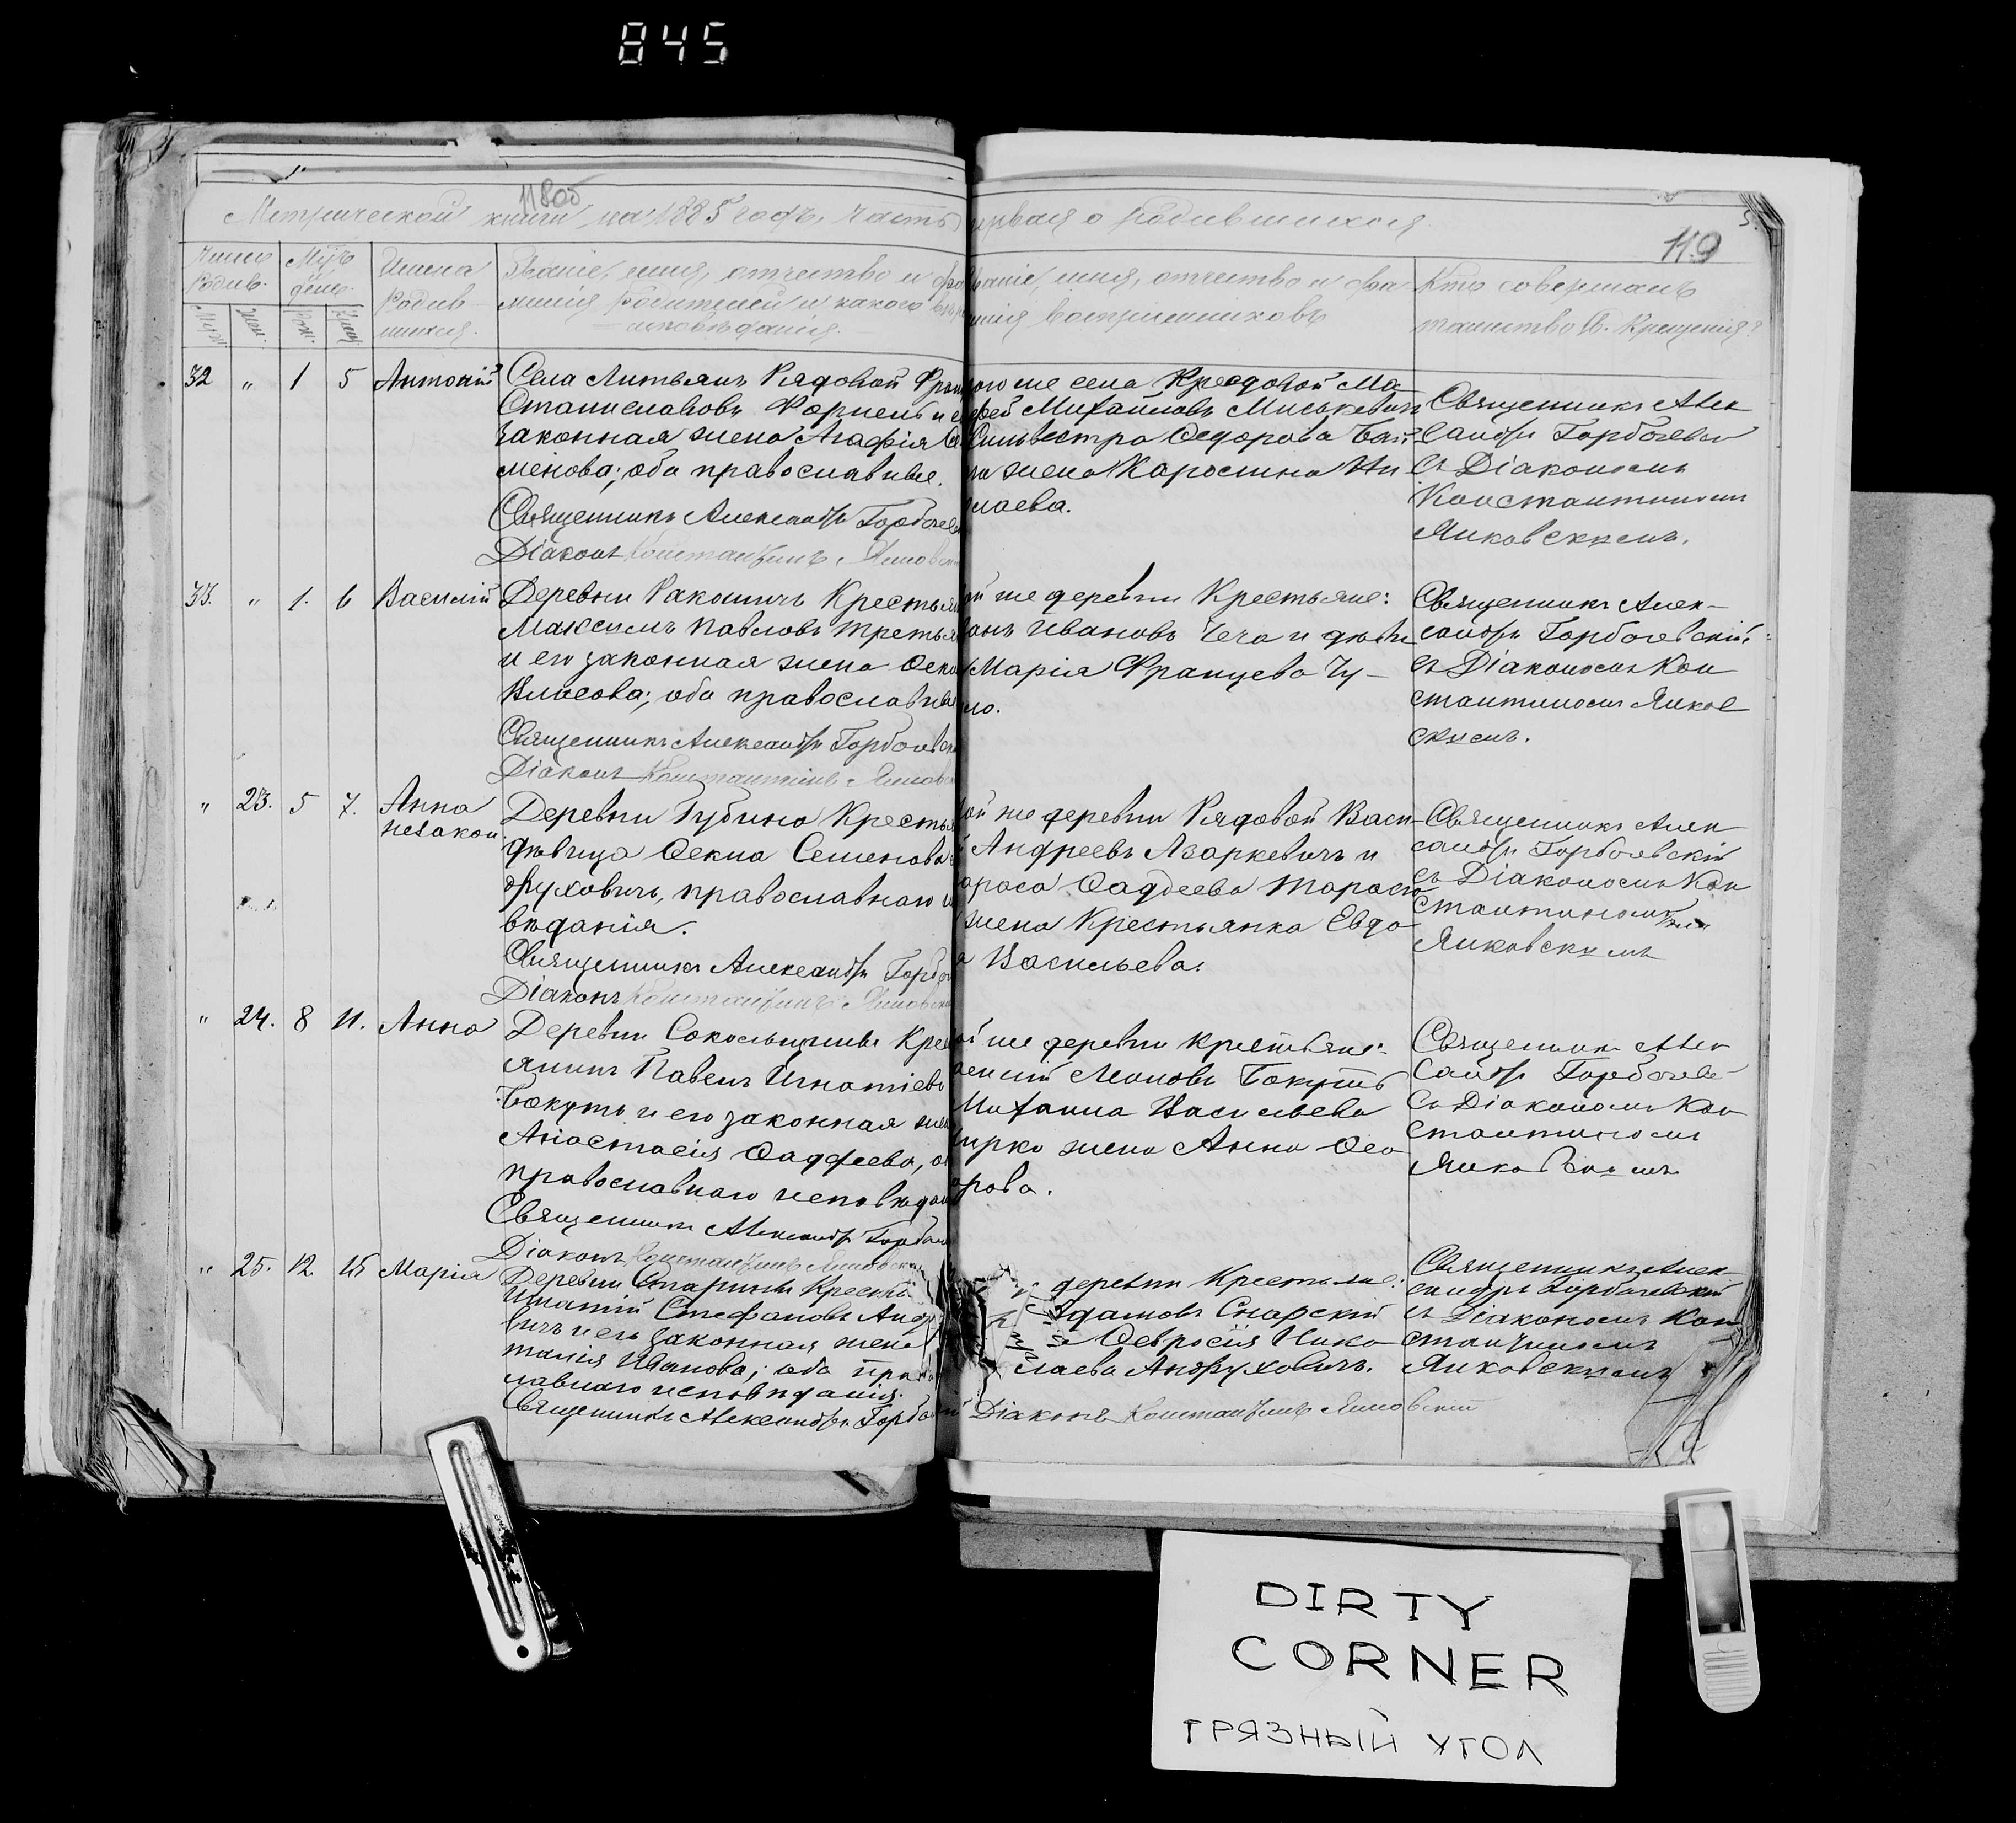 845
118об
Метрической книги на 1885 годъ, часть первая о родившихся.
5.
119
Число родив.
Муж.
Жен.
Мѣс. день.
Рож.
Крещ.
Имена родившихся.
Званіе, имя, отчество и фамилія родителей и какого вѣроисповѣданія.
Званіе, имя, отчество и фамилія воспріемниковъ
Кто совершалъ таинство Св. Крещенія?
32 " 1 5 Антоній
Села Литвянъ Рядовой Фран
Станиславовъ Форнель и е
законная жена Агафія Се
менова; оба православные.
Священникъ Александръ Горбачев
Діаконъ Константинъ Янковск
ого же села Рядовой Ма
фей Михайловъ Миськевичъ
Сильвестра Ѳедорова
на жена Каролина Ни
лаева.
Священникъ Алек
сандръ Горбачевск
съ Діакономъ
Константиномъ
Янковскимъ.
33. " 1. 6 Василій
Деревни Ракошичъ Крестьян
Максимъ Павловъ Третья
и его законная жена Ѳекл
Власова; оба православные
Священникъ Александръ Горбачевск
Діаконъ Константинъ Янков
ой же деревни Крестьяне:
Ивановъ Чеча и дѣви
Марія Францева Чу-
ло.
Священникъ Алек-
сандръ Горбачевскій
съ Діакономъ Кон
стантиномъ Янков
скимъ.
" 23. 5 7. Анна
незакон.
Деревни Губино Крестья
дѣвица Ѳекла Семенова
друховичъ, православнаго и
вѣданія.
Священникъ Александръ Горба
Діаконъ Константинъ Янковск
ой же деревни Рядовой Васи-
Андреевъ Лазаркевичъ и
араса Ѳаддеева Тарас
жена Крестьянка Евдо
а Васильева.
Священникъ Алек
сандръ Горбачевскій
съ Діакономъ Кон
стантиномъ
Янковскимъ
" 24. 8 11. Анна
Деревни Сокольщины Крес
янинъ Павелъ Игнатіевъ
Бокуть и его законная жен
Анастасія Ѳаддеева, о
православнаго исповѣдан
Священникъ Александръ Горбач
Діаконъ Константинъ Янковск
ой же деревни Крестьяне:
Бокуть
Михаила Васильева
ирко жена Анна Ѳео
орова.
Священникъ Алек
сандръ Горбачев
съ Діакономъ Кон
стантиномъ
Янковскимъ
" 25. 12. 15 Марія
Деревни Старины Крестья
Игнатій Стефановъ Анд
вичъ и его законная жена
талія Иванова; оба пра
лавнаго исповѣданія.
Священникъ Александръ Горбач
деревни Крестьяне:
Адамовъ Снарскій
Ѳевросія Нико
лаева Андруховичъ.
Діаконъ Константинъ Янковскій
Священникъ Алек
сандръ Горбачевскій
съ Діакономъ Кон
стантиномъ
Янковскимъ
DIRTY
CORNER
ГРЯЗНЫЙ УГОЛ